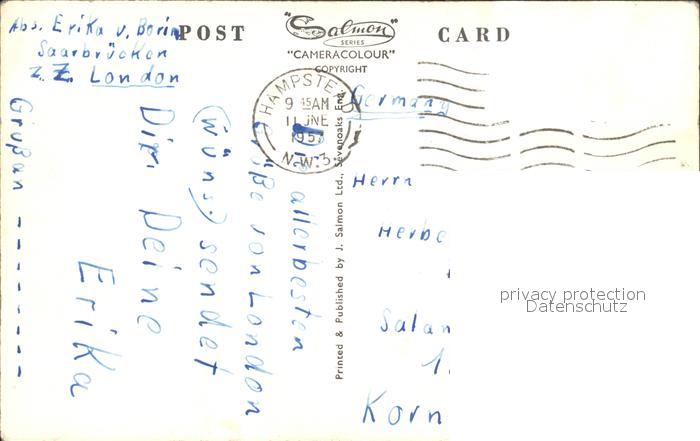 POST CARD
"Salmon"
SERIES
"CAMERACOLOUR"
COPYRIGHT
Abs. Erika v. Borin
Saarbrücken
z. Z. London
HAMPSTEAD
9 45AM
11 JNE
195
N.W.3.
Germany
Herrn
Herbe
Salan
1.
Korn
Die allerbesten
Grüße von London
(wünsc) sendet
Dir. Deine
Erika
Gruß an -------
Printed & Published by J. Salmon Ltd., Sevenoaks Eng.
privacy protection
Datenschutz